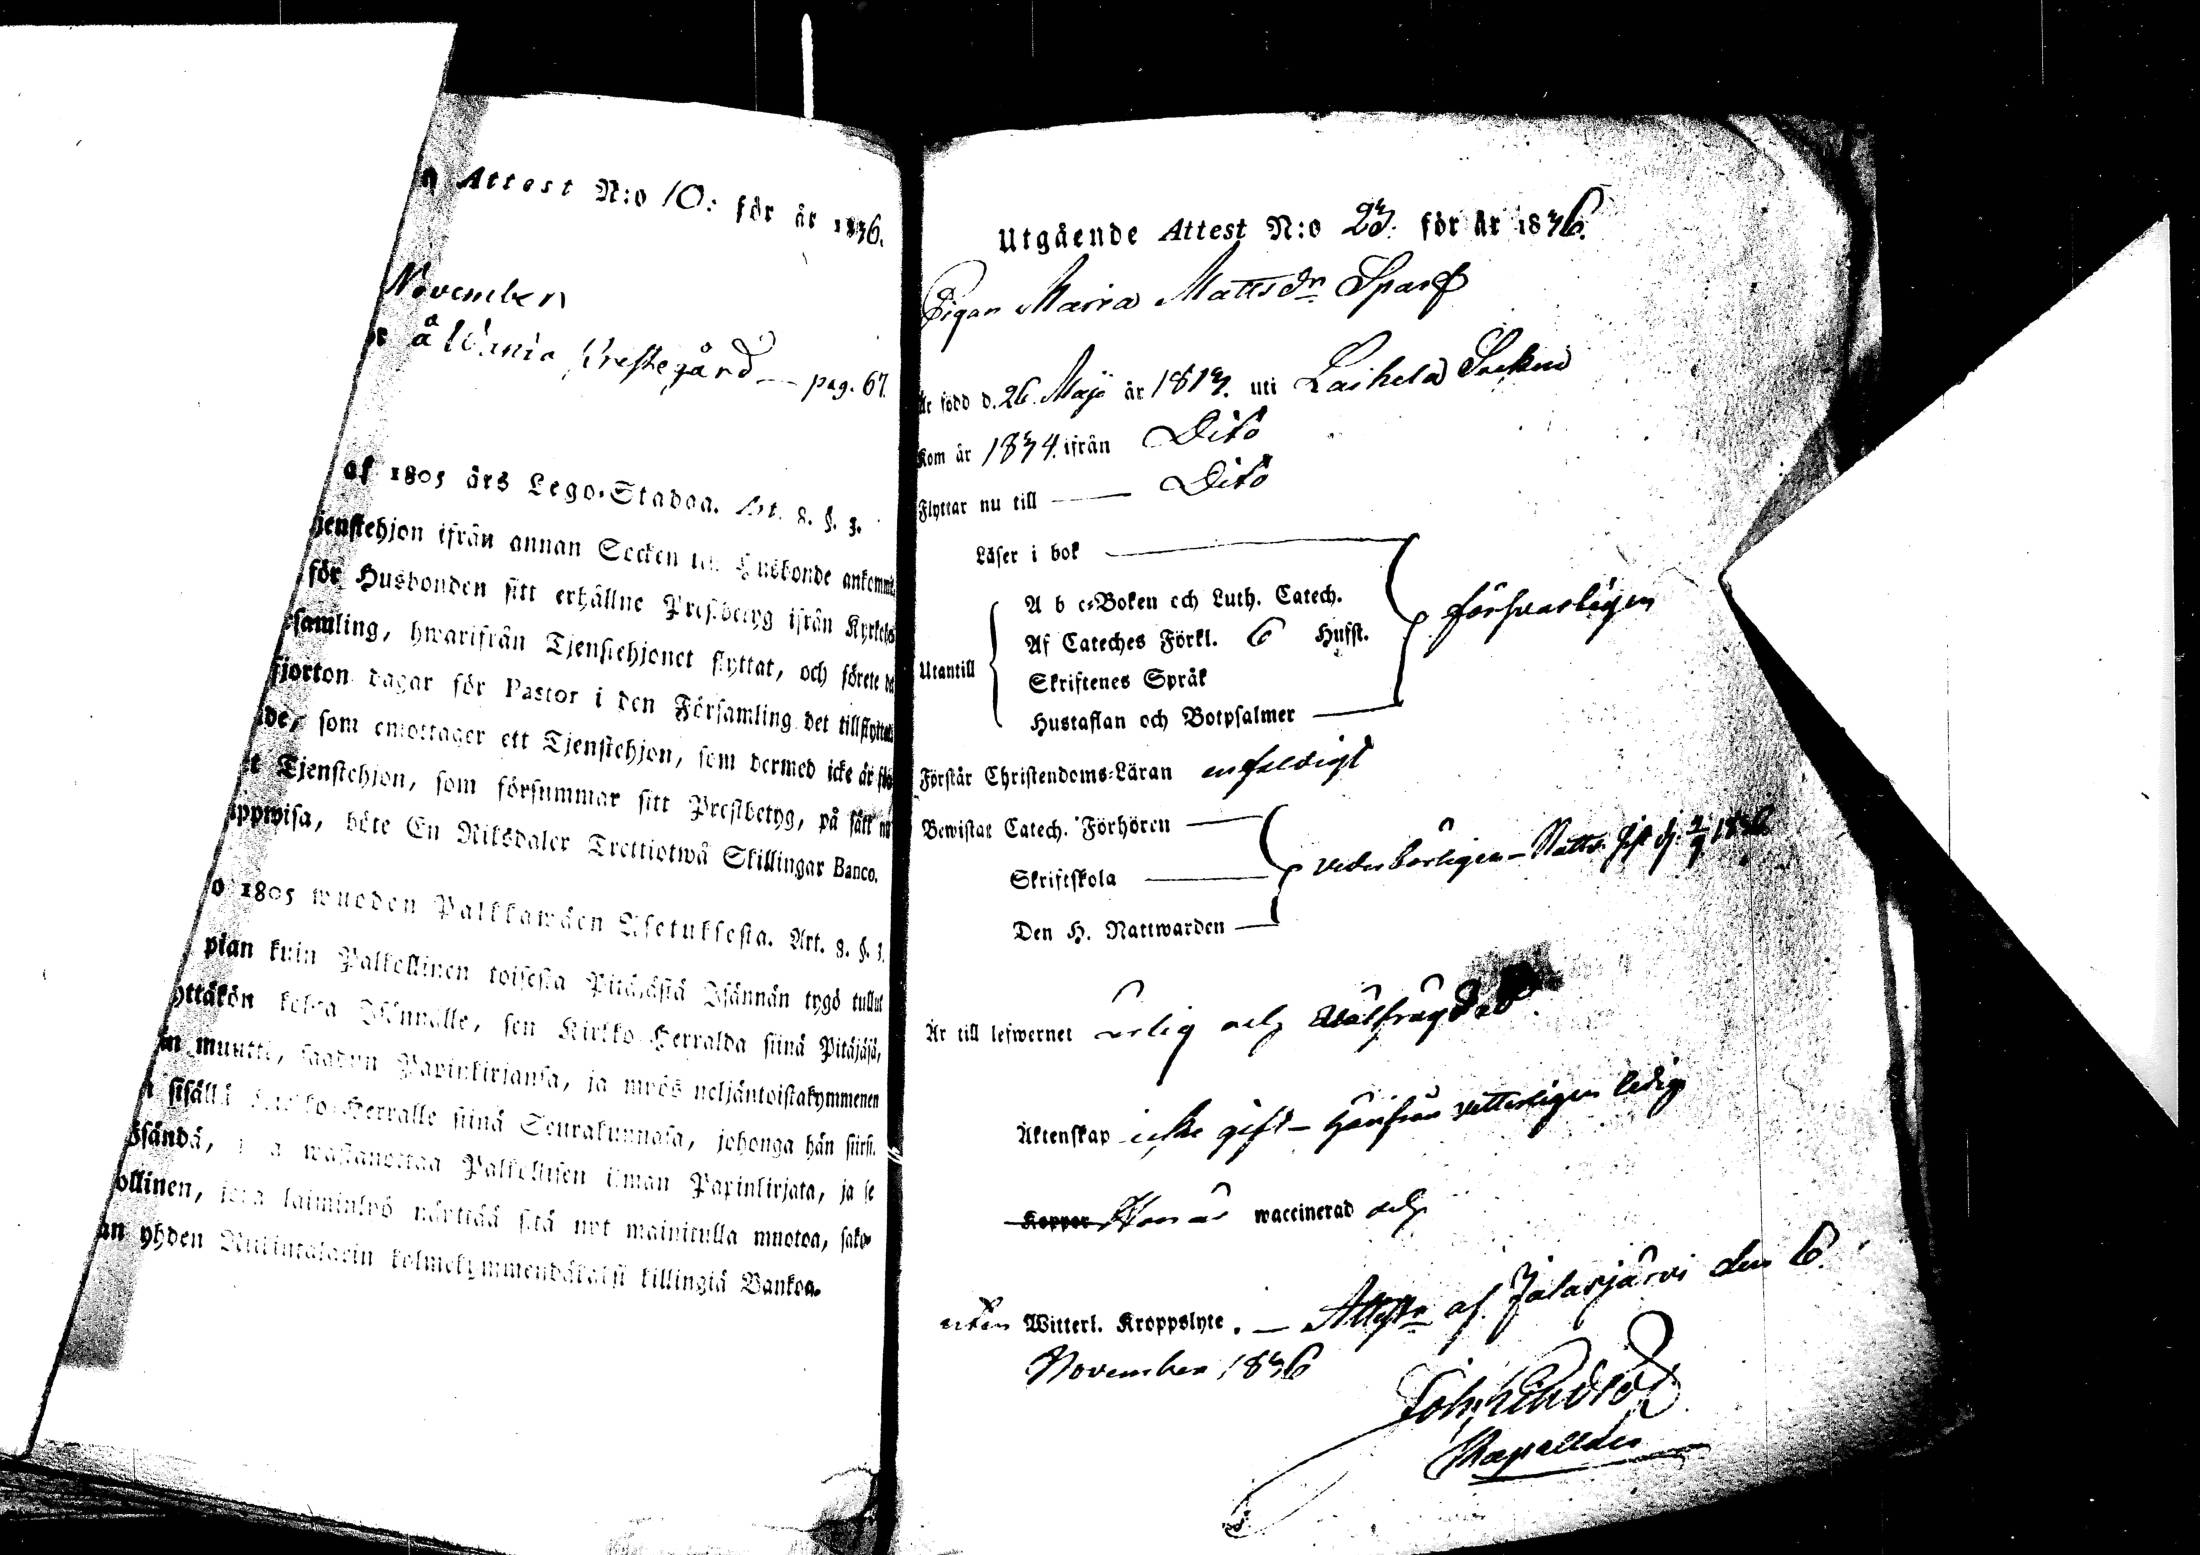 Attest N:o 10: för år 1836.
November
å Wania Prestegård — pag. 67.
af 1805 års Lego-Stadga. Art. 8. §. 3.
jenstehjon ifrån annan Socken till Husbonde ankommit
för Husbonden sitt erhållne Prestbetyg ifrån Kyrkoh
samling, hwarifrån Tjenstehjonet flyttat, och förete de
fjorton dagar för Pastor i den Församling det tillflyttat
de, som emottager ett Tjenstehjon, som dermed icke är
t Tjenstehjon, som försummar sitt Prestbetyg, på sätt
uppwisa, böte En Riksdaler Trettiotwå Skillingar Banco.
o 1805 wuoden Palkkawäen Asetuksesta. Art. 8. §. 3.
pian kuin Palkollinen toisesta Pitäjästä Isännän tygö tullut
yttäkön Isännälle, sen Kirkko-Herralda siinä Pitäjäsä,
muutti, saadun Papinkirjansa, ja myös neljäntoistakymmenen
sisällä Kirkko-Herralle siinä Seurakunnasa, johonga hän siirsi.
Isändä, joka wastanottaa Palkollisen ilman Papinkirjata, ja se
ollinen, joka laiminlyö näyttää sitä nyt mainitulla muotoa, sako-
an yhden Riikintalarin kolmekymmendäkaksi killingiä Bankoa.
Utgående Attest N:o 23. för år 1836.
Pigan Maria Mattsdr Sparf
Är född d. 26 Maji år 1813. uti Laihela Socken
Kom år 1834. ifrån Dito
Flyttar nu till — Dito
Läser i bok
A b c-Boken och Luth. Catech.
Af Cateches Förkl. 6 Hufst. försvarligen
Utantill
Skriftenes Språk
Hustaflan och Botpsalmer
Förstår Christendoms-Läran enfaldigt
Bewistat Catech. Förhören
Skriftskola vederbörligen — Nattv. 1836
Den H. Nattwarden
Är till lefwernet ärlig och wälfrägdad
Äktenskap icke gift — härifrån vitterligen ledig
Koppor Hon är waccinerad och
utan Witterl. Kroppslyte. — Attestr af Jalasjärvi den 6.
November 1836
Kapellan